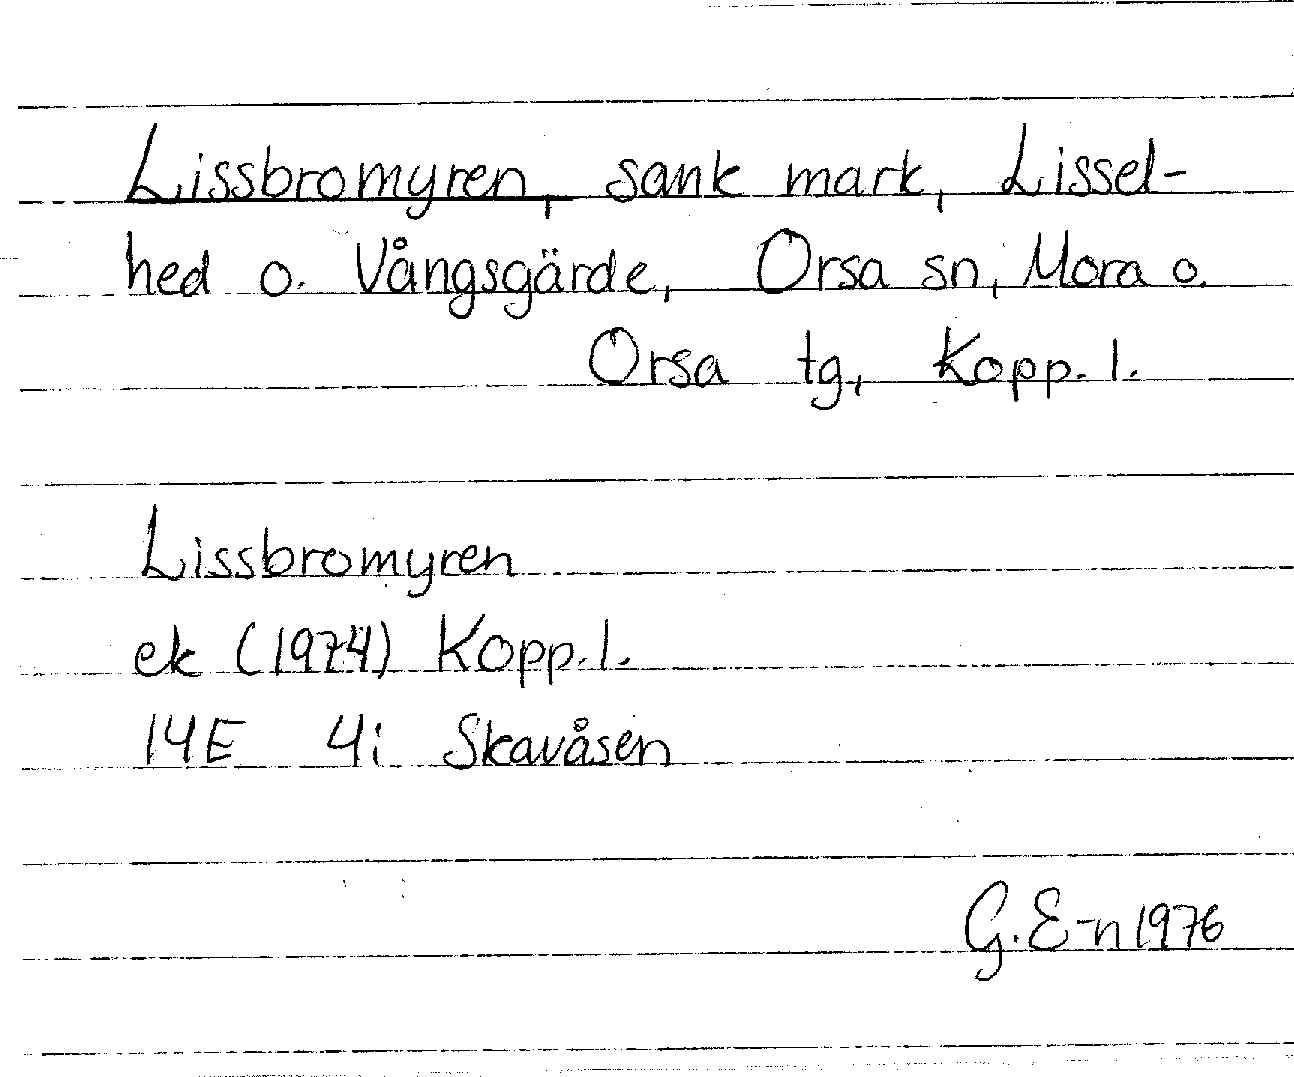 Lissbromyren, sank mark, Lissel-
hed o. Vångsgärde, Orsa sn, Mora o.
Orsa tg, Kopp. l.
Lissbromyren
ek (1974) Kopp. l.
14E 4i Skavåsen
G. E-n 1976